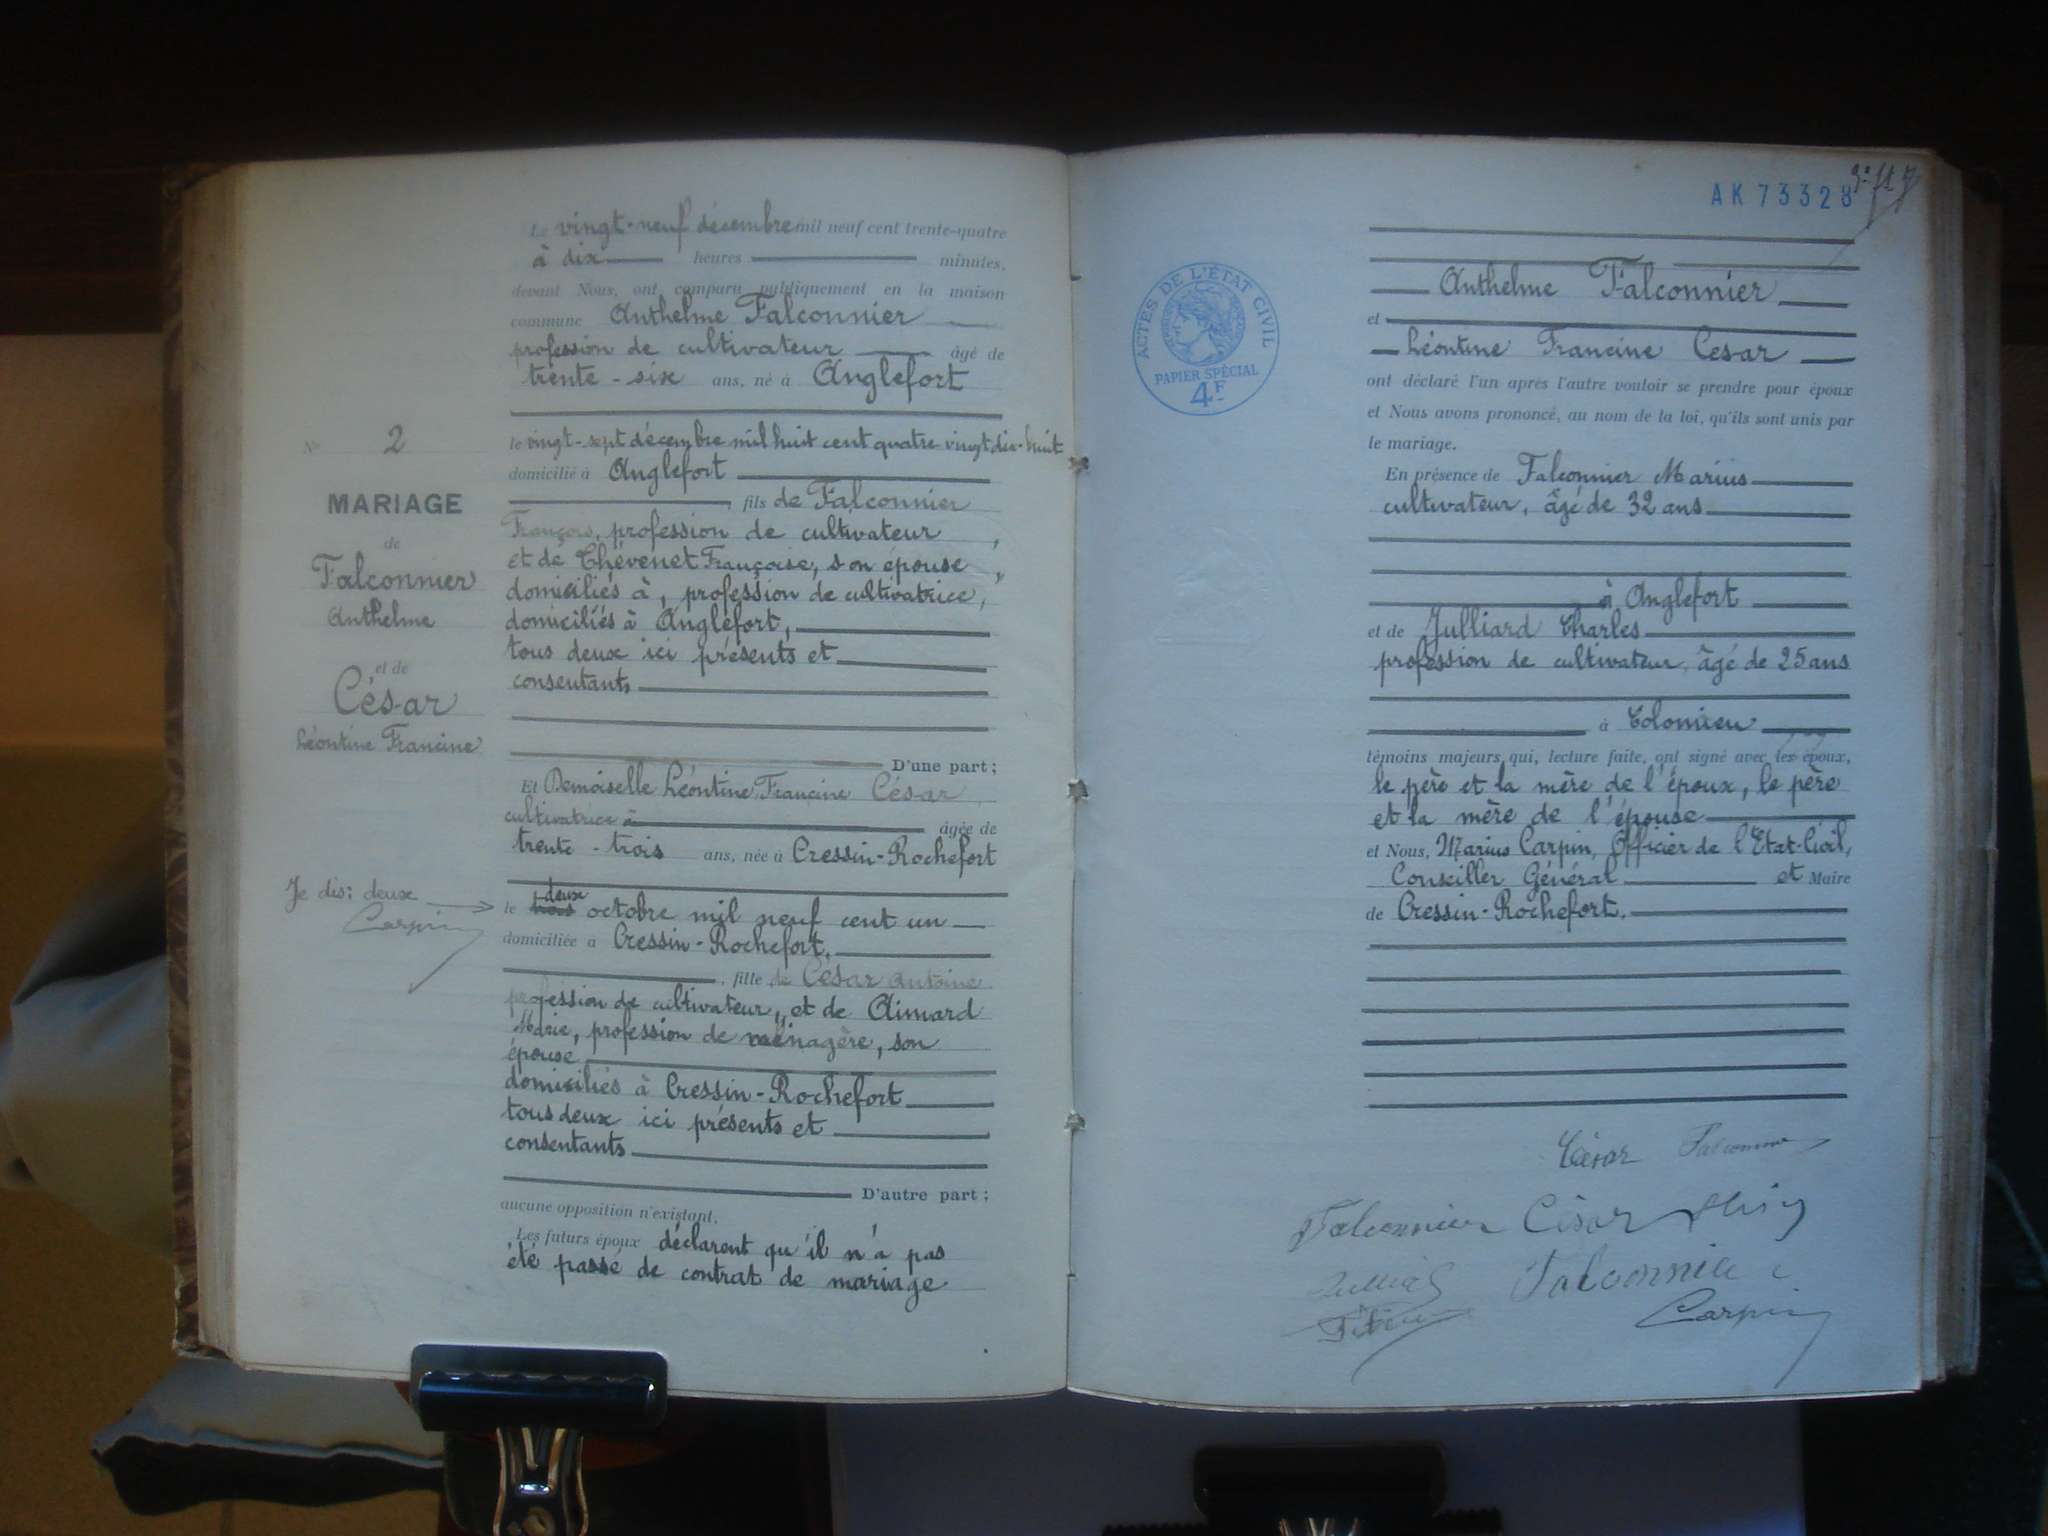 Le vingt-neuf décembre mil neuf cent trente-quatre
à dix heures minutes,
devant Nous, ont comparu publiquement en la maison
commune Anthelme Falconnier
profession de cultivateur âgé de
trente-six ans, né à Anglefort
le vingt-sept décembre mil huit cent quatre vingt dix-huit
domicilié à Anglefort
fils de Falconnier
François, profession de cultivateur,
et de Thévenet Françoise, son épouse,
domiciliés à, profession de cultivatrice,
domiciliés à Anglefort,
tous deux ici présents et
consentants
D'une part;
Et Demoiselle Léontine Francine César
cultivatrice à âgée de
trente-trois ans, née à Cressin-Rochefort
deux
le trois octobre mil neuf cent un
domiciliée à Cressin-Rochefort,
, fille de César Antoine
profession de cultivateur, et de Aimard
Marie, profession de ménagère, son
épouse
domiciliés à Cressin-Rochefort
tous deux ici présents et
consentants
D'autre part;
aucune opposition n'existant.
Les futurs époux déclarent qu'il n'a pas
été passé de contrat de mariage
No 2
MARIAGE
de
Falconnier
Anthelme
et de
César
Léontine Francine
Je dis: deux
Carpin
AK 73328
ACTES DE L'ÉTAT CIVIL
PAPIER SPÉCIAL
4F
Anthelme Falconnier
et
Léontine Francine Cesar
ont déclaré l'un après l'autre vouloir se prendre pour époux
et Nous avons prononcé, au nom de la loi, qu'ils sont unis par
le mariage.
En présence de Falconnier Marius
cultivateur, âgé de 32 ans
à Anglefort
et de Julliard Charles
profession de cultivateur, âgé de 25 ans
à Colomieu
témoins majeurs qui, lecture faite, ont signé avec les époux,
le père et la mère de l'époux, le père
et la mère de l'épouse
et Nous, Marius Carpin, Officier de l'Etat-Civil,
Conseiller Général et Maire
de Cressin-Rochefort.
César Falconnier
Falconnier César
Falconnier
Carpin